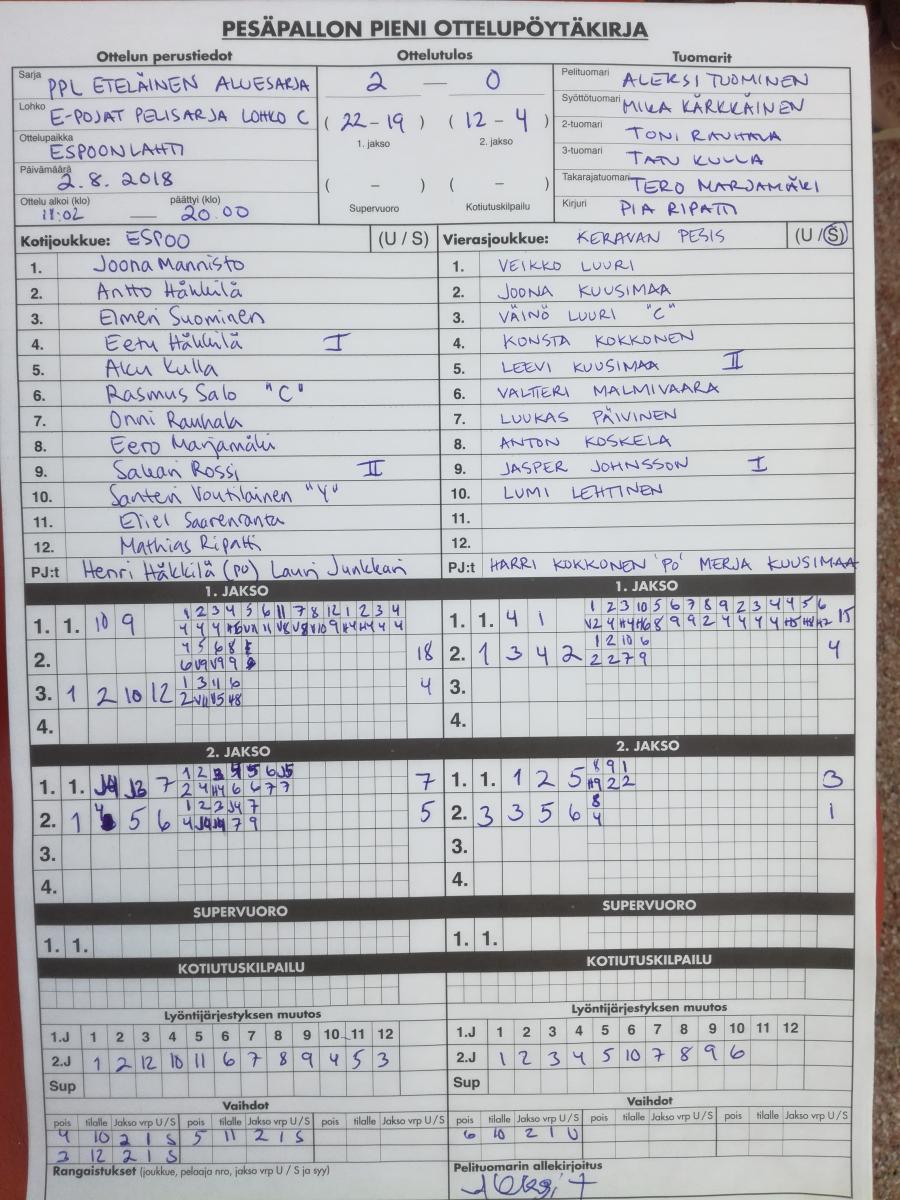 PESÄPALLON PIENI OTTELUPÖYTÄKIRJA
Ottelun perustiedot
Sarja PPL ETELÄINEN ALUESARJA
Lohko E-POJAT PELISARJA LOHKO C
Ottelupaikka ESPOONLAHTI
Päivämäärä 2.8.2018
Ottelu alkoi (klo) päättyi (klo)
18:02 — 20.00
Ottelutulos
2 — 0
( 22 - 19 ) ( 12 - 4 )
1. jakso 2. jakso
( - ) ( - )
Supervuoro Kotiutuskilpailu
Tuomarit
Pelituomari ALEKSI TUOMINEN
Syöttötuomari MIKA KÄRKKÄINEN
2-tuomari TONI RAUHALA
3-tuomari TATU KULLA
Takarajatuomari TERO MARJAMÄKI
Kirjuri PIA RIPATTI
Kotijoukkue: ESPOO (U / S)
1. Joona Mannisto
2. Antto Häkkilä
3. Elmeri Suominen
4. Eetu Häkkilä I
5. Aku Kulla
6. Rasmus Salo "C"
7. Onni Rauhala
8. Eero Marjamäki
9. Sakari Rossi II
10. Santeri Voutilainen "Y"
11. Eliel Saarenranta
12. Mathias Ripatti
PJ:t Henri Häkkilä (PO) Lauri Junkkari
Vierasjoukkue: KERAVAN PESIS (U / S)
1. VEIKKO LUURI
2. JOONA KUUSIMAA
3. VÄINÖ LUURI "C"
4. KONSTA KOKKONEN
5. LEEVI KUUSIMAA II
6. VALTTERI MALMIVAARA
7. LUUKAS PÄIVINEN
8. ANTON KOSKELA
9. JASPER JOHNSSON I
10. LUMI LEHTINEN
11.
12.
PJ:t HARRI KOKKONEN 'PO' MERJA KUUSIMAA
1. JAKSO
1 2 3 4 5 6 11 7 8 12 1 2 3 4
1. 1. 10 9
4 5 6 8
2. 18
1 3 11 6
3. 1 2 10 12 4
4.
1. JAKSO
1 2 3 10 5 6 7 8 9 2 3 4 4 5 6
1. 1. 4 1 15
1 2 10 6
2. 1 3 4 2 2 2 7 9 4
3.
4.
2. JAKSO
1. 1. 7 7
2 4 H4 6 6 7 7
1 2 3 J4 7
2. 1 4 5 6 5
3.
4.
2. JAKSO
8 9 1
1. 1. 1 2 5 H9 2 2 3
8
2. 3 3 5 6 4 1
3.
4.
SUPERVUORO
1. 1.
SUPERVUORO
1. 1.
KOTIUTUSKILPAILU
KOTIUTUSKILPAILU
Lyöntijärjestyksen muutos
1.J 1 2 3 4 5 6 7 8 9 10 11 12
2.J 1 2 12 10 11 6 7 8 9 4 5 3
Sup
Lyöntijärjestyksen muutos
1.J 1 2 3 4 5 6 7 8 9 10 11 12
2.J 1 2 3 4 5 10 7 8 9 6
Sup
Vaihdot
pois tilalle Jakso vrp U / S pois tilalle Jakso vrp U / S pois tilalle Jakso vrp U / S
4 10 2 1 S 5 11 2 1 S
3 12 2 1 S
Vaihdot
pois tilalle Jakso vrp U / S pois tilalle Jakso vrp U / S pois tilalle Jakso vrp U / S
6 10 2 1 U
Rangaistukset (joukkue, pelaaja nro, jakso vrp U / S ja syy)
Pelituomarin allekirjoitus